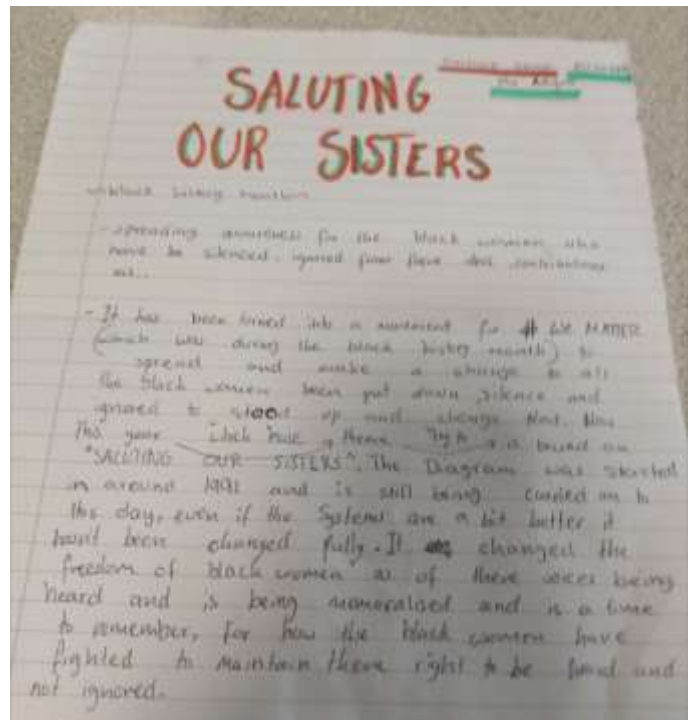 SALUTING
OUR SISTERS
black history month
- spreading awareness for the black women who
have be silenced, ignored from there contributions
- It has been turned into a movement for # WE MATTER
(which was during the black history month) to
spread and make a change to all
the black women been put down, silence and
ignored to stood up and change Now
This year theme is a based on
"SALUTING OUR SISTERS". The Diagram was started
in around 1991 and is still being carried on to
this day, even if the Systems are a bit better it
hasnt been changed fully. It changed the
freedom of black women as of there voices being
heard and is being memoralised and is a time
to remember, for how the black women have
fighted to maintain there right to be heard and
not ignored.